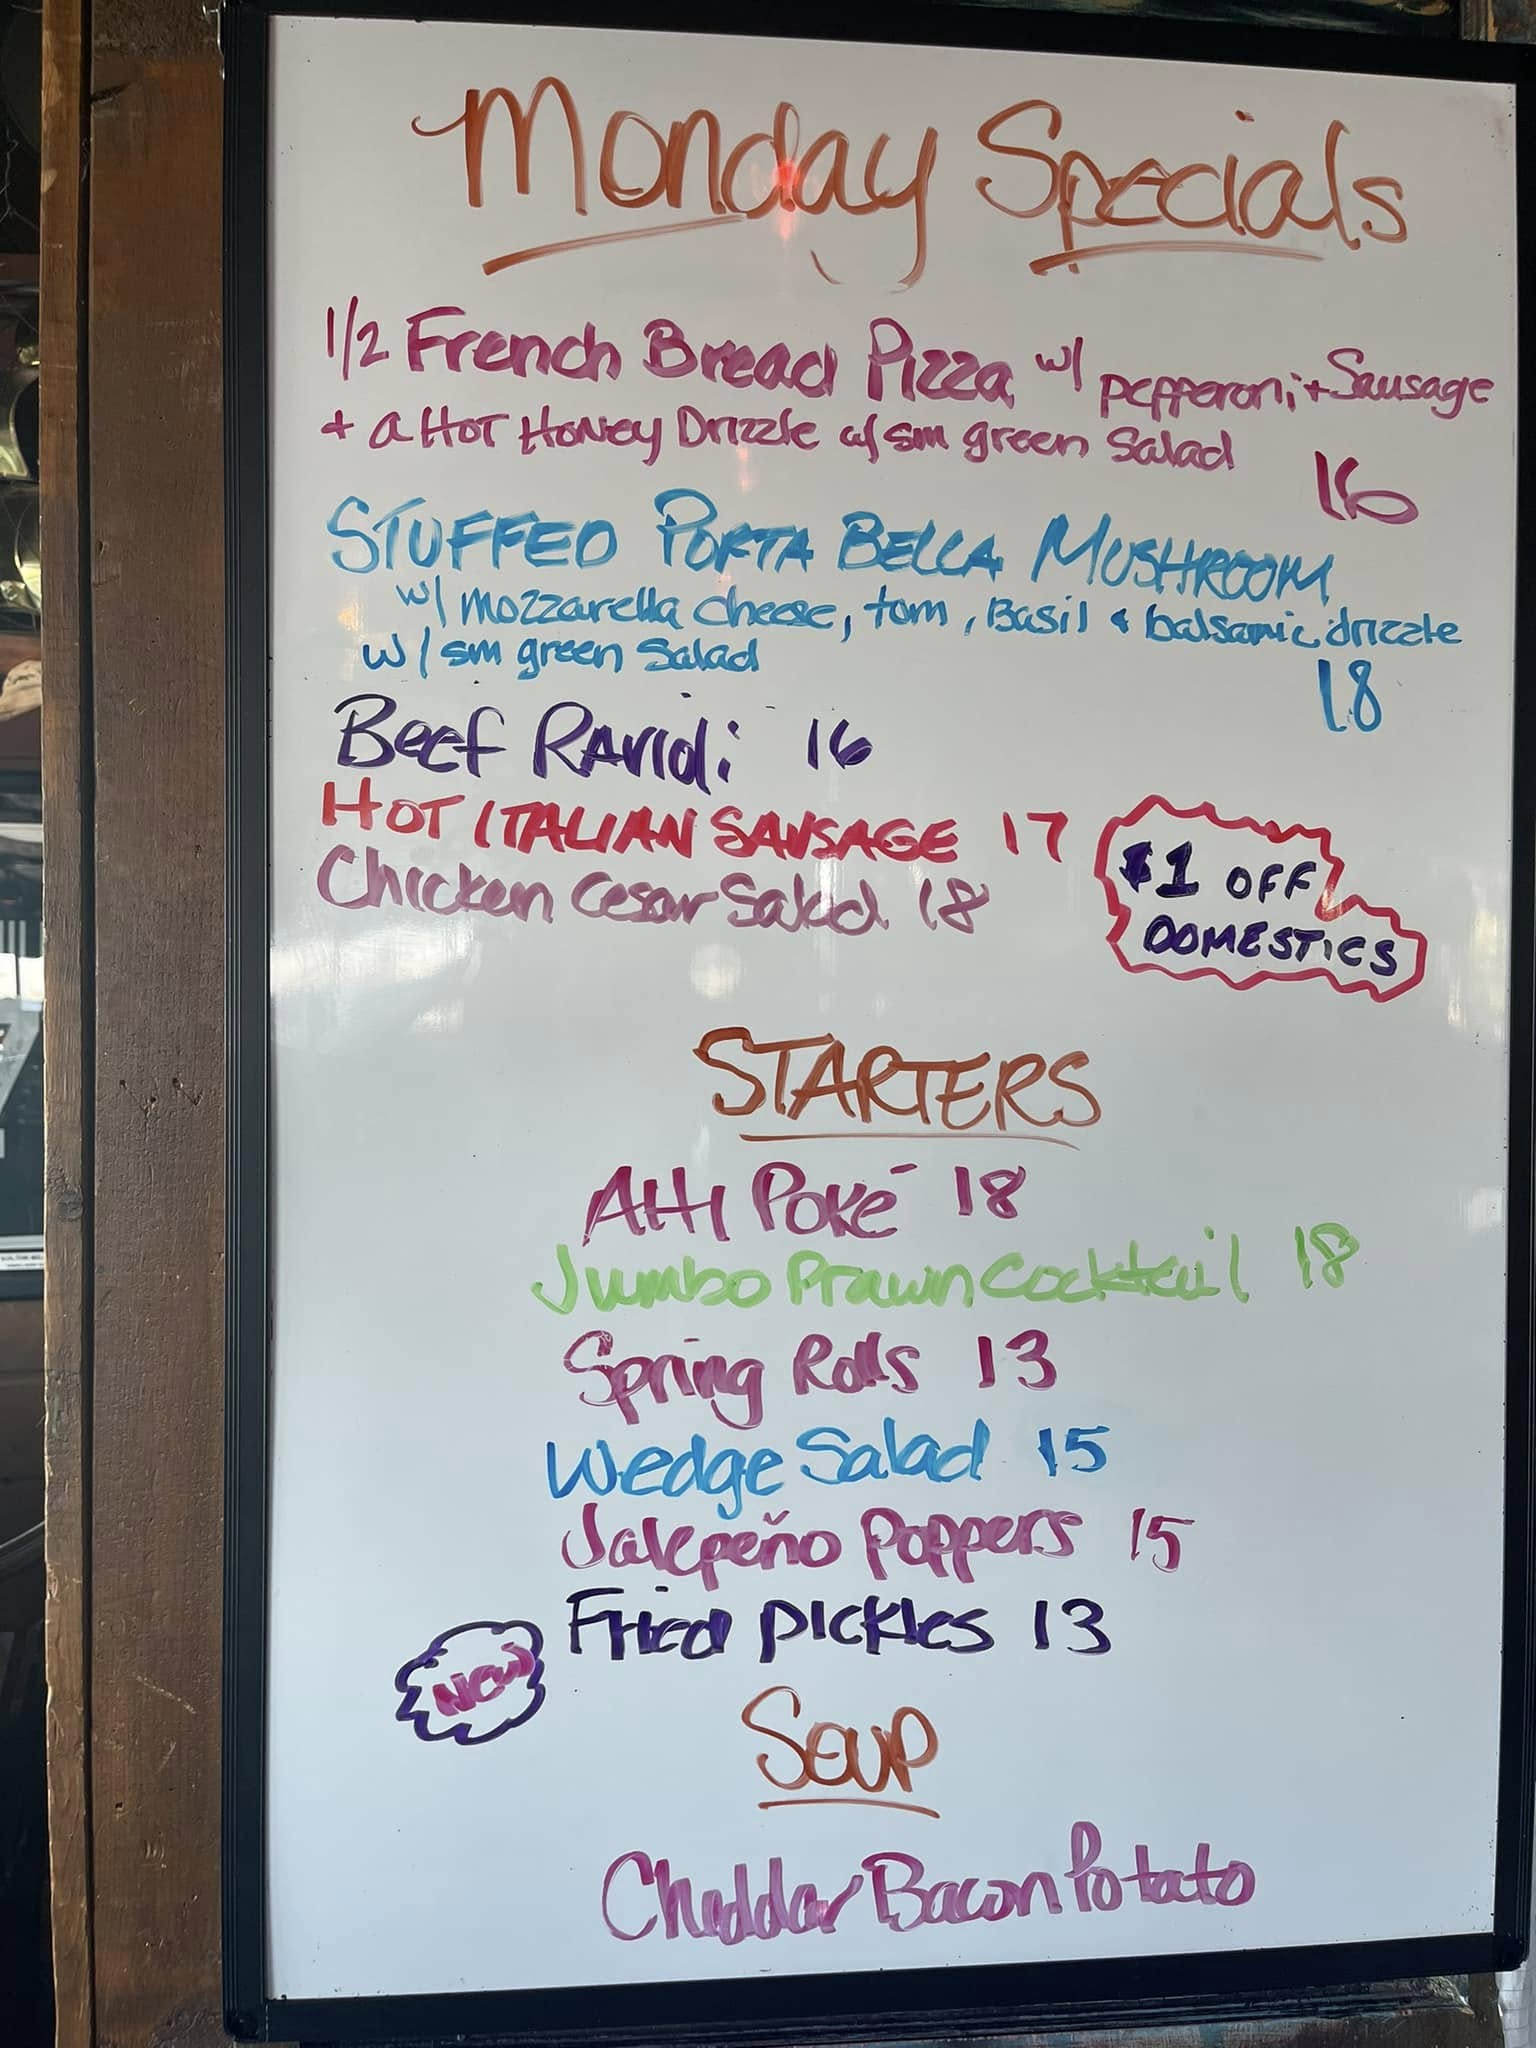 Monday Specials
1/2 French Bread Pizza w/ pepperoni + Sausage
+ a Hot Honey Drizzle w/ sm green Salad
16
STUFFED PORTA BELLA MUSHROOM
w/ mozzarella cheese, tom, Basil & balsamic drizzle
w/ sm green Salad
18
Beef Ravioli 16
HOT ITALIAN SAUSAGE 17
Chicken Cesar Salad 18
$1 OFF
DOMESTICS
STARTERS
AHI POKÉ 18
Jumbo Prawn Cocktail 18
Spring Rolls 13
Wedge Salad 15
Jalepeño Poppers 15
Fried Pickles 13
NEW
SOUP
Cheddar Bacon Potato